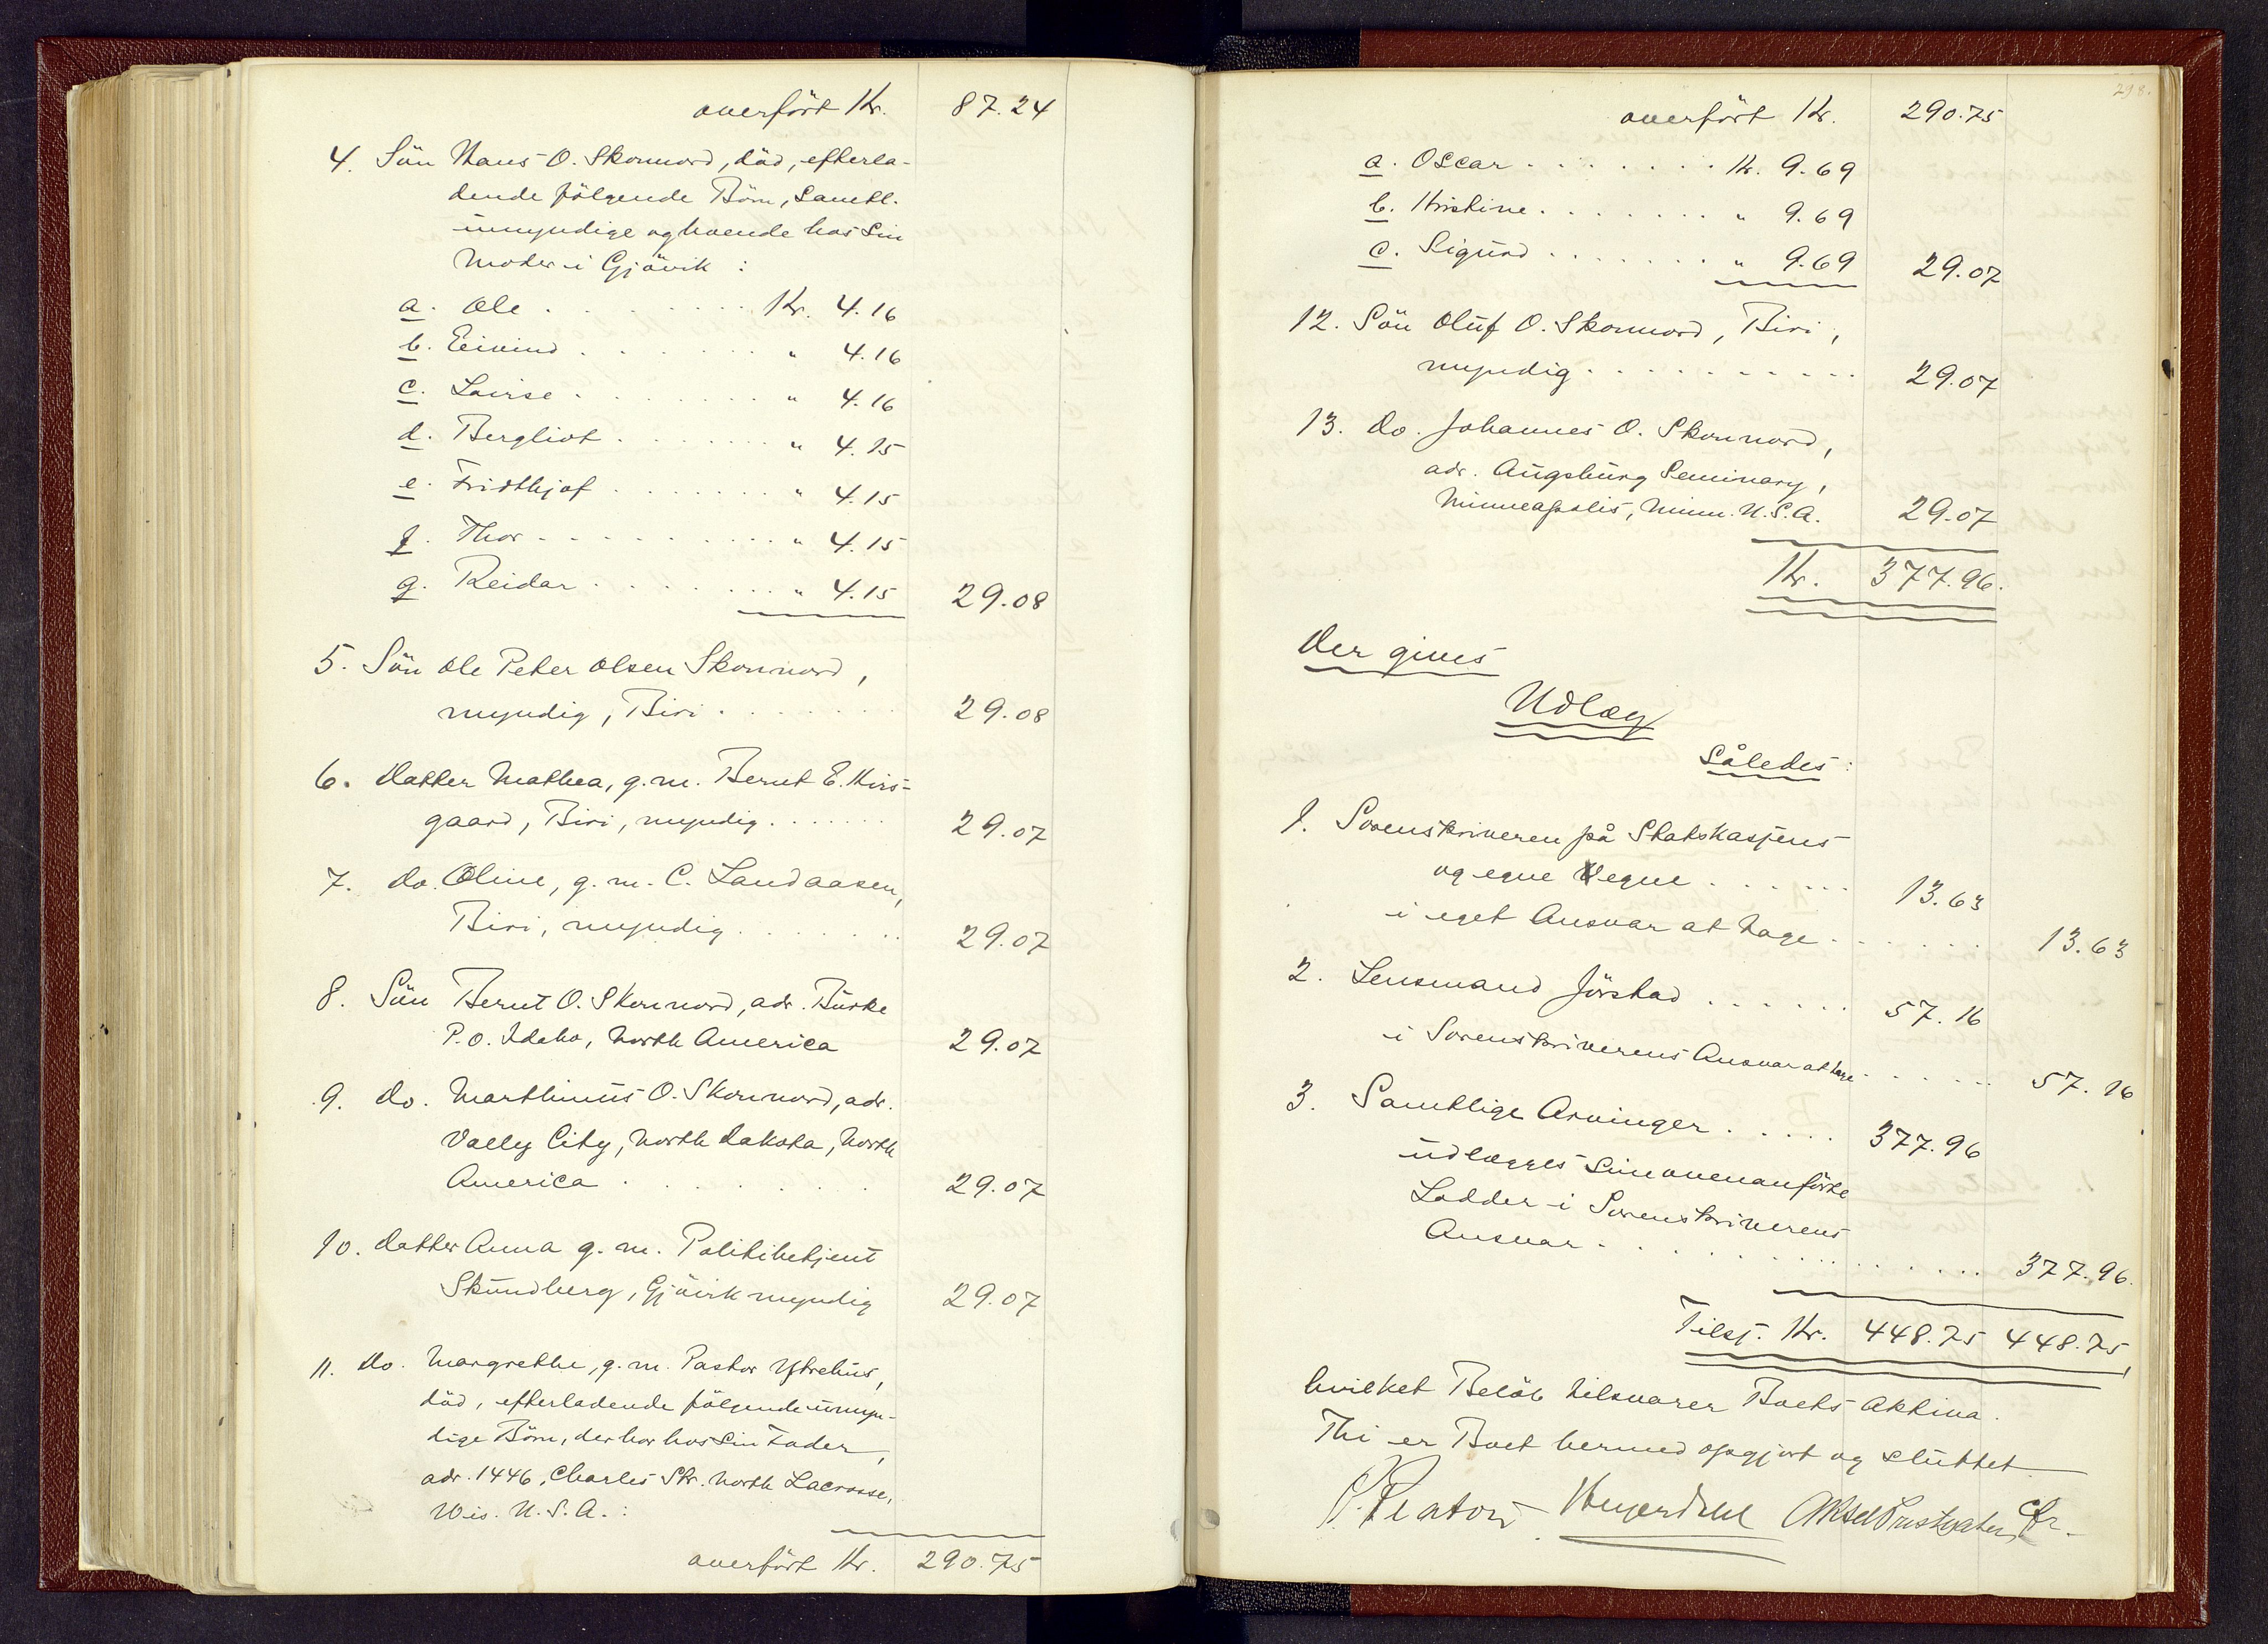 overført Kr. 87.24
4. Søn Hans O. Skonnord, død, efterla-
dende følgende Børn, samtl.
umyndige og boende hos sin
Moder i Gjøvik :
a. Ole . . . . . . . . Kr. 4.16
b. Eivind . . . . . . . " 4.16
c. Lovise . . . . . . . " 4.16
d. Bergliot . . . . . . " 4.15
e. Fridthjof . . . . . . " 4.15
f. Thor . . . . . . . . " 4.15
g. Reidar . . . . . . . " 4.15 29.08
5. Søn Ole Peter Olsen Skonnord,
myndig, Biri . . . . . . 29.08
6. Datter Mathea, g.m. Bernt E. Kirs-
gaard, Biri, myndig . . . . . 29.07
7. do. Oline, g.m. C. Landaasen,
Biri, myndig . . . . . . . 29.07
8. Søn Bernt O. Skonnord, adr. Burke
P.O. Idaho, North America 29.07
9. do. Marthinus O. Skonnord, adr.
Valley City, North Dakota, North
America . . . . . . . 29.07
10. Datter Anna g.m. Politibetjent
Skundberg, Gjøvik myndig 29.07
11. do. Margrethe, g.m. Pastor Ytrehus,
død, efterladende følgende umyn-
dige Børn, der bor hos sin Fader,
adr. 1446, Charles Str. North Lacrosse,
Wis. U.S.A. :
overført Kr. 290.75
298.
overført Kr. 290.75
a. Oscar . . . . . . . Kr. 9.69
b. Kristine . . . . . . . " 9.69
c. Sigurd . . . . . . . " 9.69 29.07
12. Søn Oluf O. Skonnord, Biri,
myndig . . . . . . . . . . 29.07
13. do. Johannes O. Skonnord,
adr. Augsburg Seminary,
Minneapolis, Minn. U.S.A. 29.07
Kr. 377.96.
Der gives
Udlæg
således:
1. Sorenskriveren på Statskassens
og egne Vegne . . . . . . 13.63
i eget Ansvar at tage . . . . . . 13.63
2. Lensmand Jørstad . . . . . . 57.16
i Sorenskriverens Ansvar at tage . . . . . . 57.16
3. Samtlige Arvinger . . . . . 377.96
udlægges sine ovenanførte
Lodder i Sorenskriverens
Ansvar . . . . . . . . . . . . . 377.96.
Tilsj. Kr. 448.75 448.75,
hvilket Beløb tilsvarer Boets Aktiva.
Thi er Boet hermed opgjort og sluttet